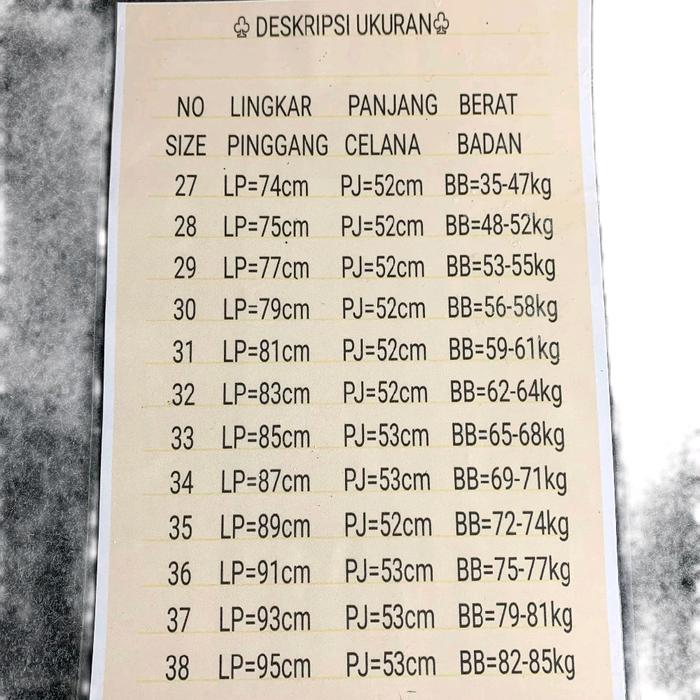 ♧ DESKRIPSI UKURAN♧
NO LINGKAR PANJANG BERAT
SIZE PINGGANG CELANA BADAN
27 LP=74cm PJ=52cm BB=35-47kg
28 LP=75cm PJ=52cm BB=48-52kg
29 LP=77cm PJ=52cm BB=53-55kg
30 LP=79cm PJ=52cm BB=56-58kg
31 LP=81cm PJ=52cm BB=59-61kg
32 LP=83cm PJ=52cm BB=62-64kg
33 LP=85cm PJ=53cm BB=65-68kg
34 LP=87cm PJ=53cm BB=69-71kg
35 LP=89cm PJ=52cm BB=72-74kg
36 LP=91cm PJ=53cm BB=75-77kg
37 LP=93cm PJ=53cm BB=79-81kg
38 LP=95cm PJ=53cm BB=82-85kg